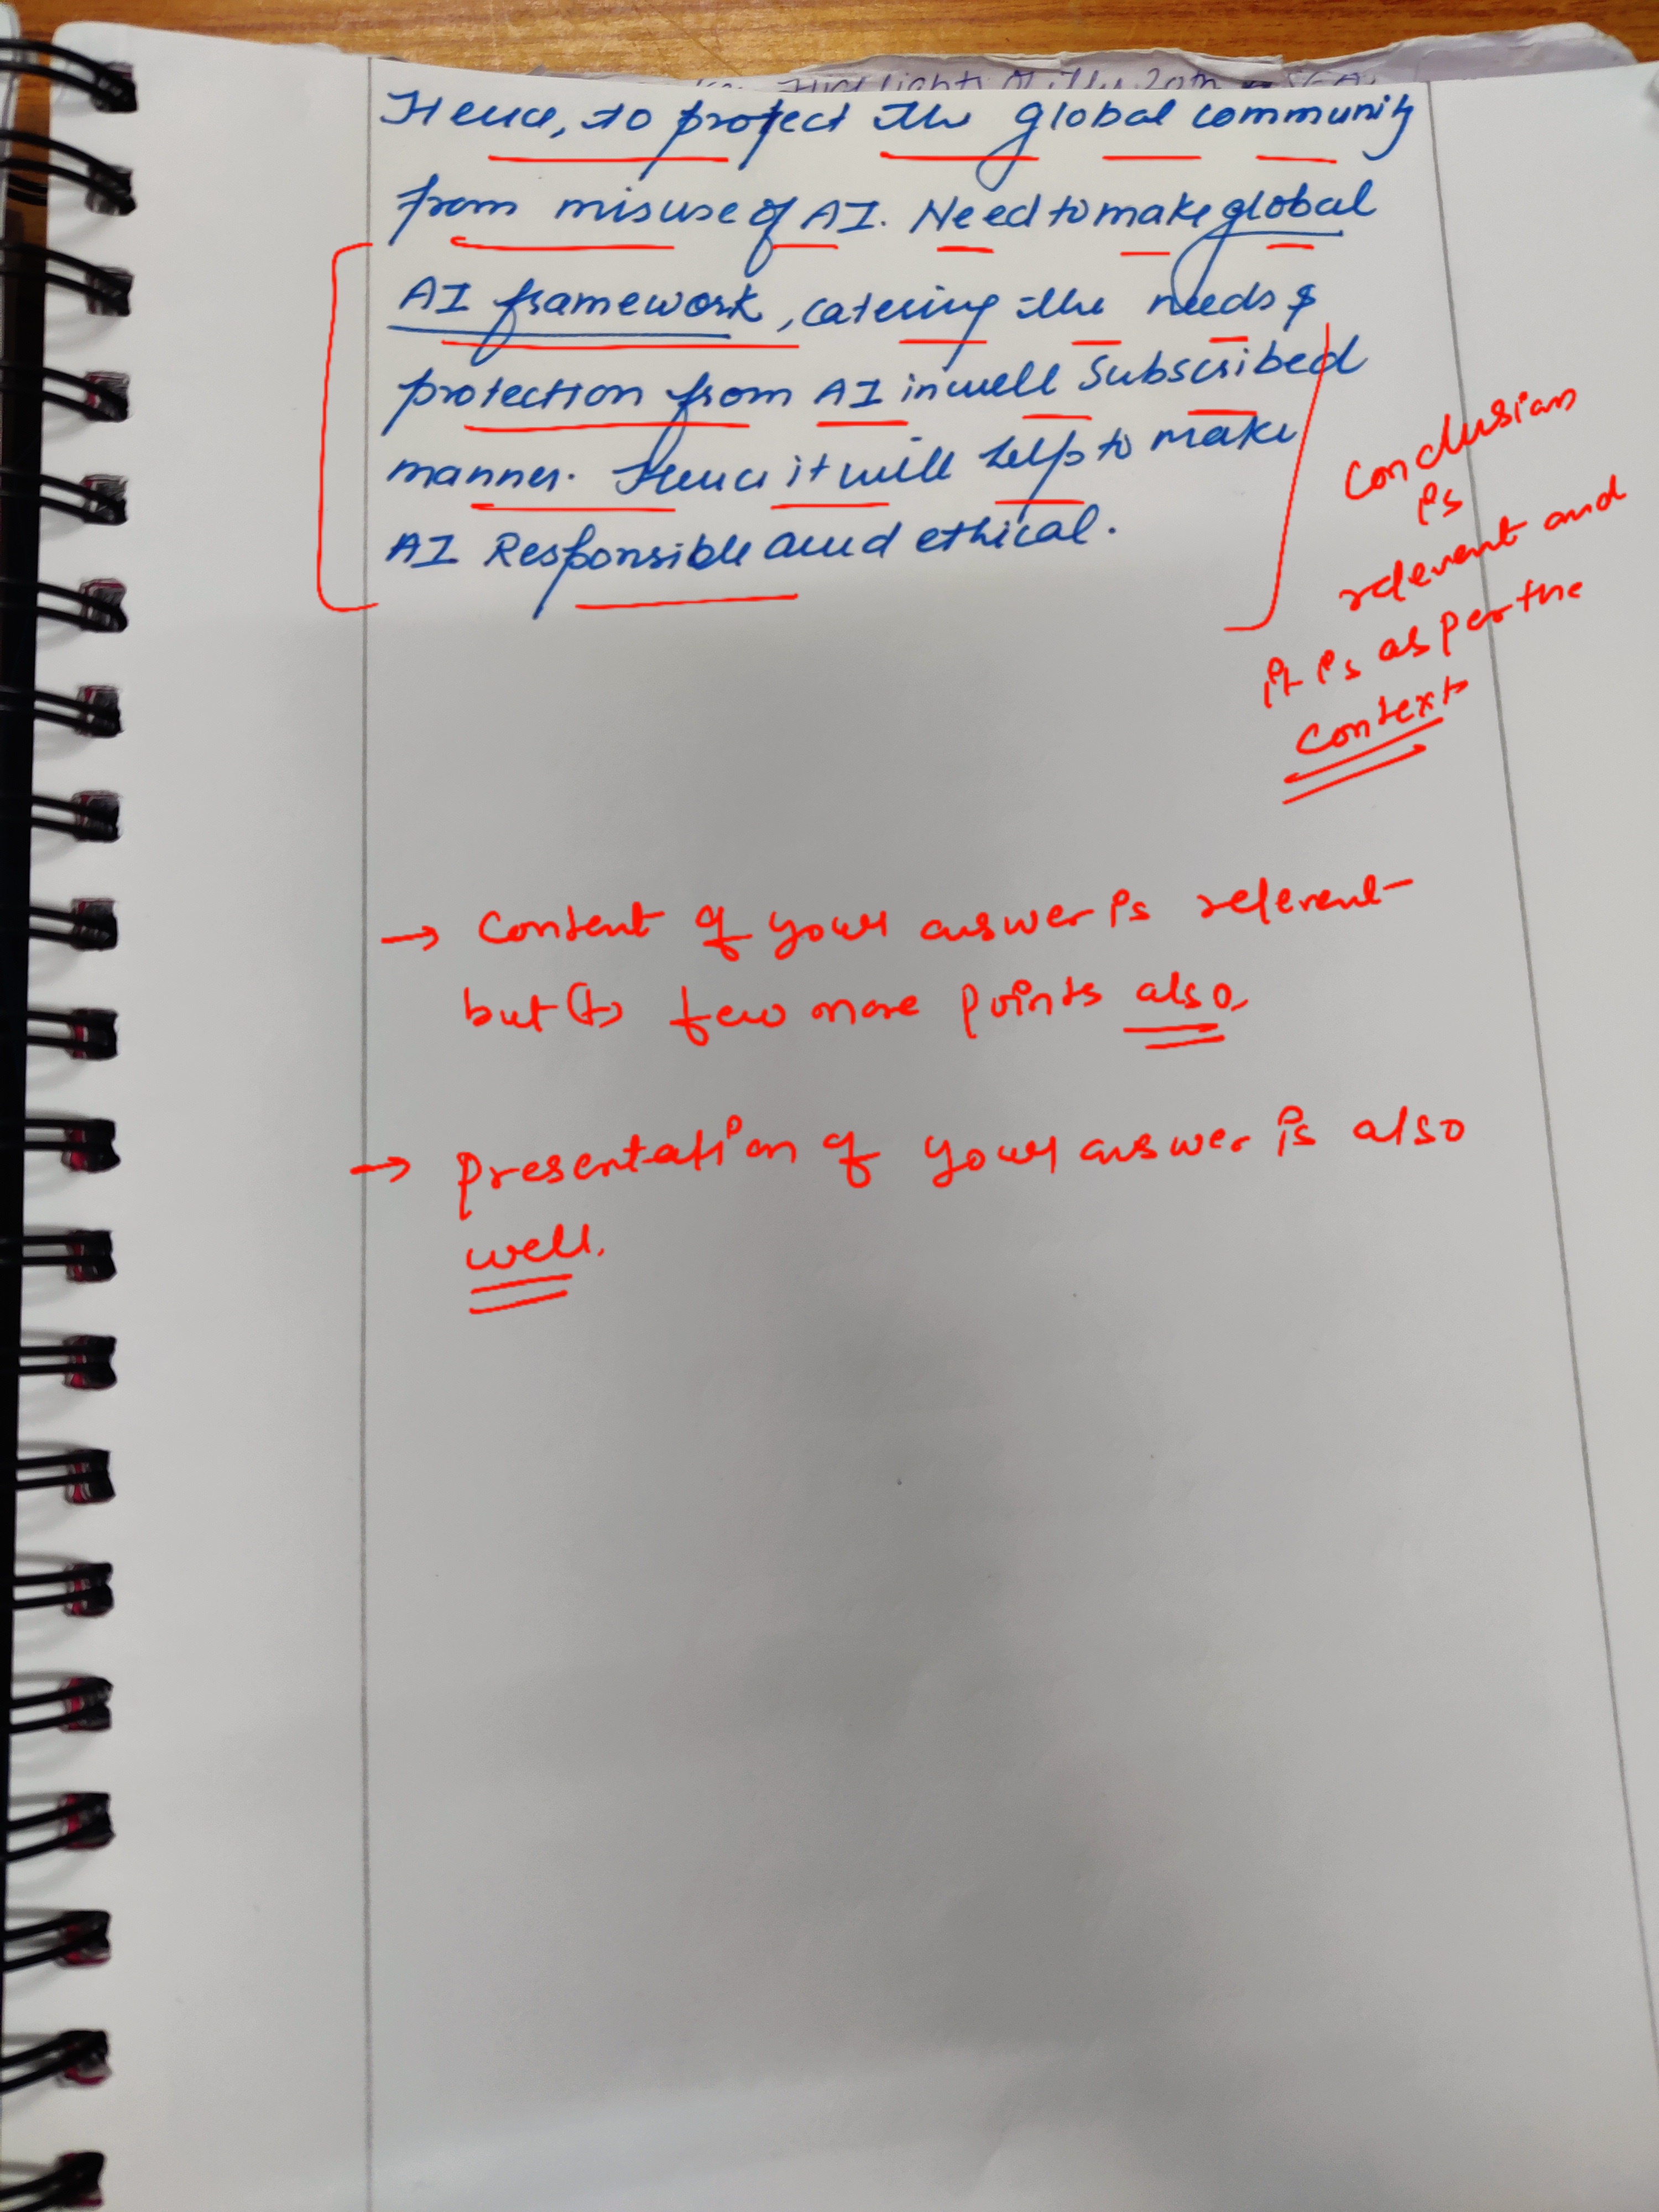 Hence, to protect the global community
from misuse of AI. Need to make global
AI framework, catering the needs &
protection from AI in well Subscribed
manner. Hence it will help to make
AI Responsible and ethical.
Conclusion
is
relevent and
it is as per the
Context
→ Content of your answer is relevent
but (+) few more points also.
→ Presentation of your answer is also
well.